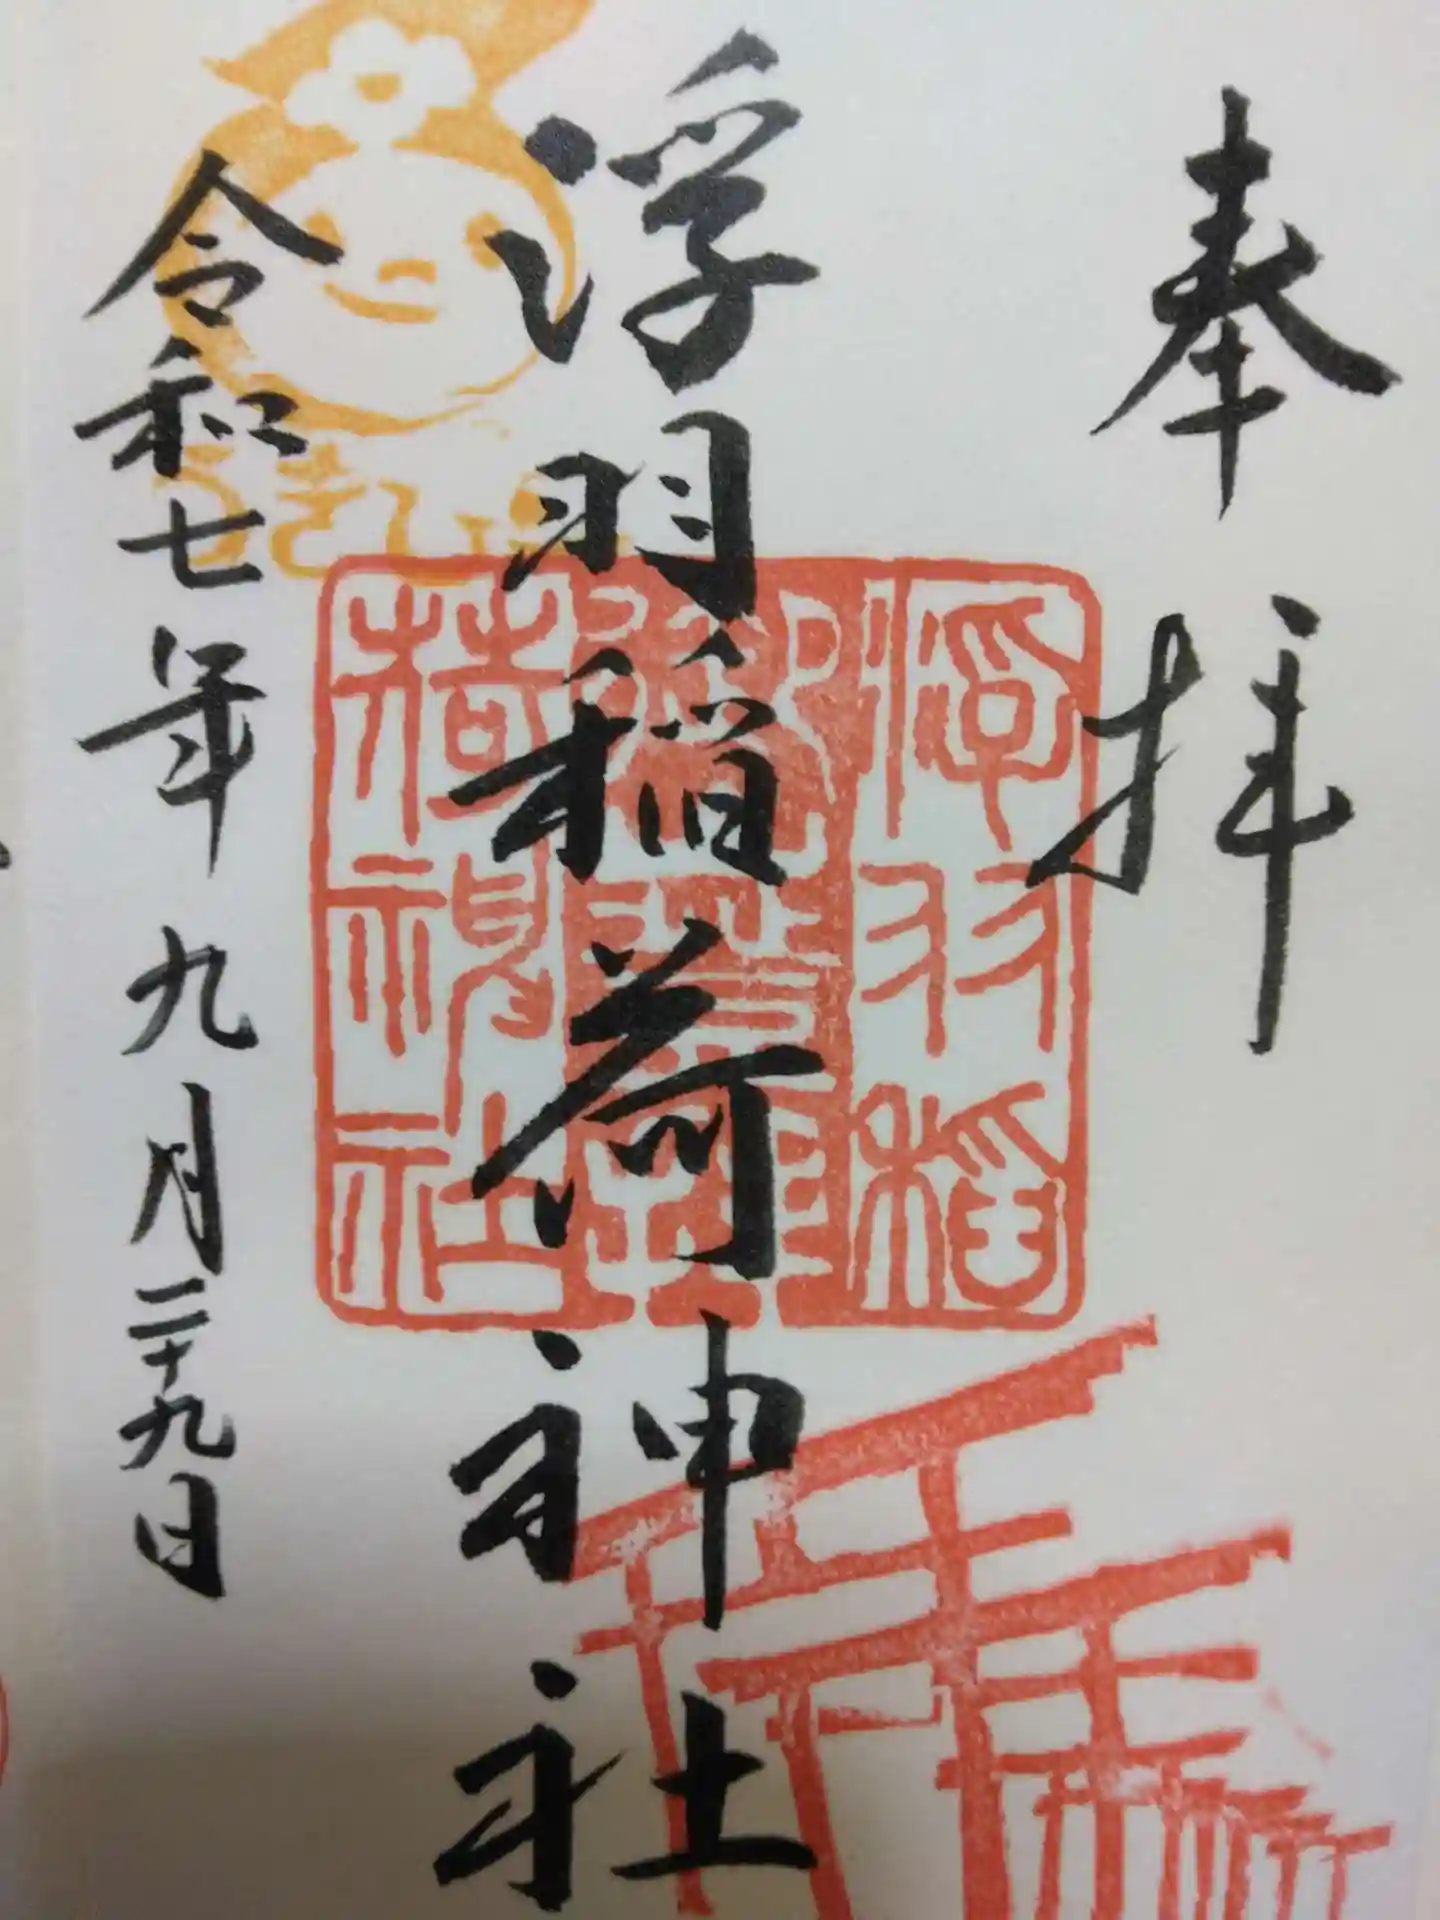 奉拝
浮羽稲荷神社
浮羽稲
荷神社
令和七年九月二十九日
うきぴー